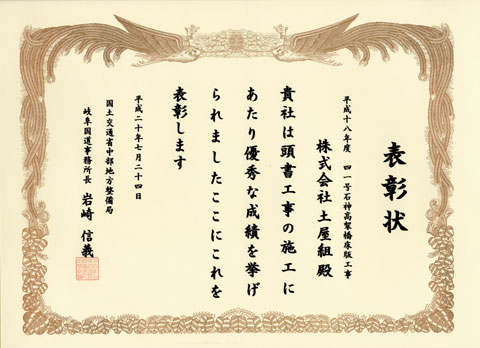 表彰状
平成十八年度 四一号石神高架橋床版工事
株式会社土屋組殿
貴社は頭書工事の施工に
あたり優秀な成績を挙げ
られましたここにこれを
表彰します
平成二十年七月二十四日
国土交通省中部地方整備局
岐阜国道事務所長 岩崎信義